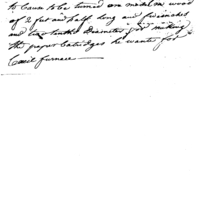 to Cause to be turned one model in wood
of 2 feet and half long and five inches
and two tenths diameter for making
the paper Catridges he wants for
Cecil furnace —